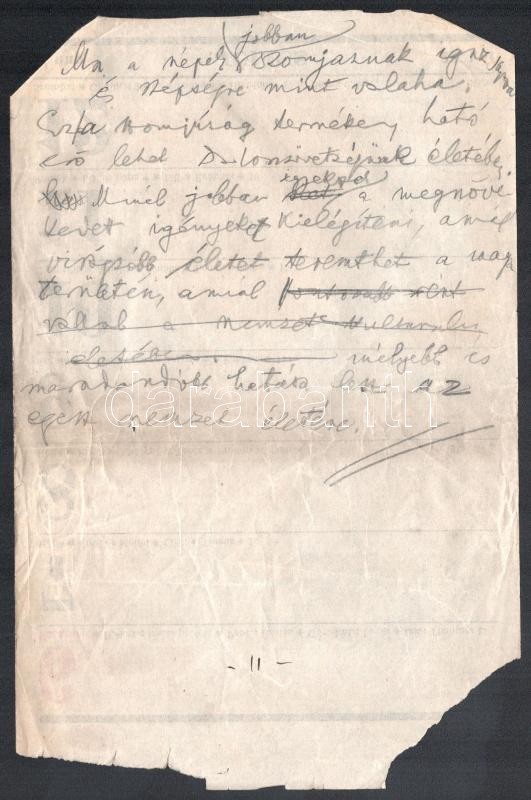 jobban
Ma a népek szomjaznak igazságra
és szépségre mint valaha.
Ez a szomjúság termékeny, ható
erő lehet Dalosszövetségünk életében,
Minél jobban igyekszik a megnöve-
kedett igényeket kielégíteni, minél
virágzóbb életet teremthet a maga
területén, annál fontosabb
a nemzet kulturális
életében mélyebb és
maradandóbb hatása lesz az
egész nemzet életére.
- 11 -
darabanth